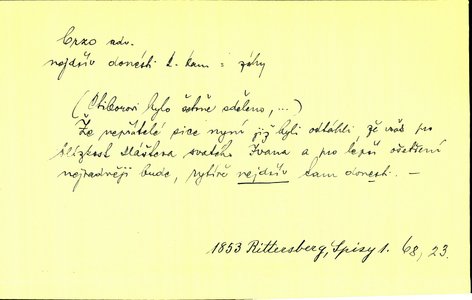 brzo adv.
nejdřív donésti k. kam = záhy
(Ctiborovi bylo ústně sděleno, ...)
Že nepřátelé sice nyní již byli odtáhli, že však pro
blízkost kláštera svatého Ivana a pro lepší ošetření
nejradněji bude, rytíře nejdřív tam donesti. —
1853 Rittersberg, Spisy 1. 68, 23.